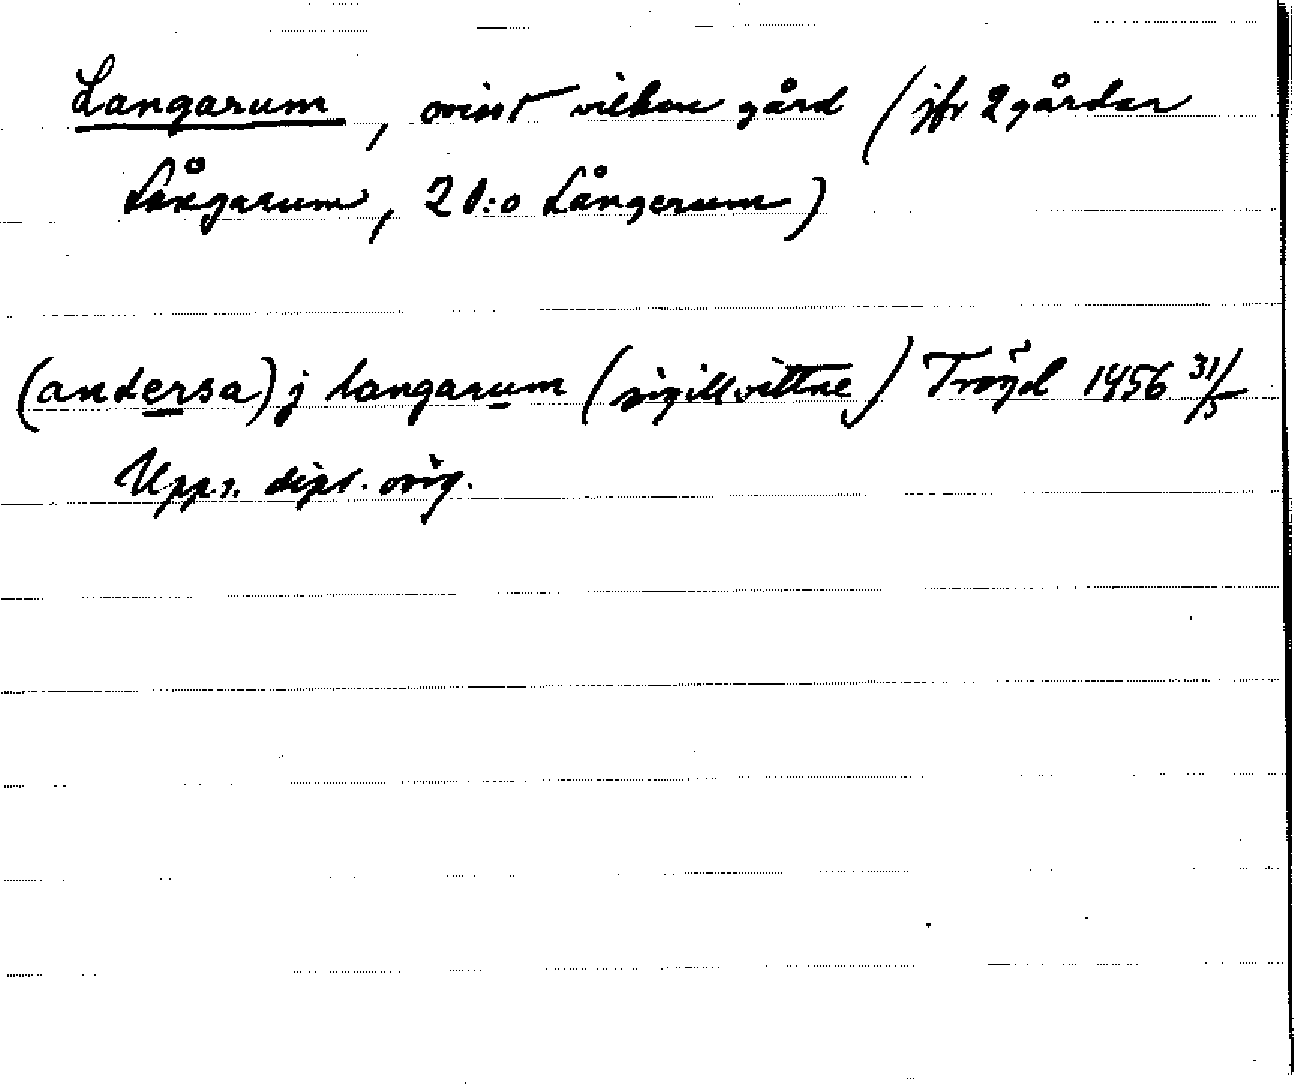 Langarum, ovisst vilken gård (jfr 2 gårdar
Långarum, 2 d:o Långerum)
(andersa) j langarum (sigillvittne) Tröjd 1456 31/5
Upps. dipl. orig.